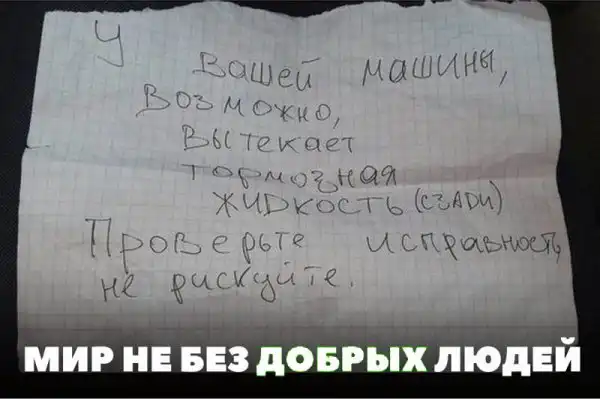 У Вашей машины,
Возможно,
Вытекает
тормозная
жидкость (сзади)
Проверьте исправность,
не рискуйте.
МИР НЕ БЕЗ ДОБРЫХ ЛЮДЕЙ